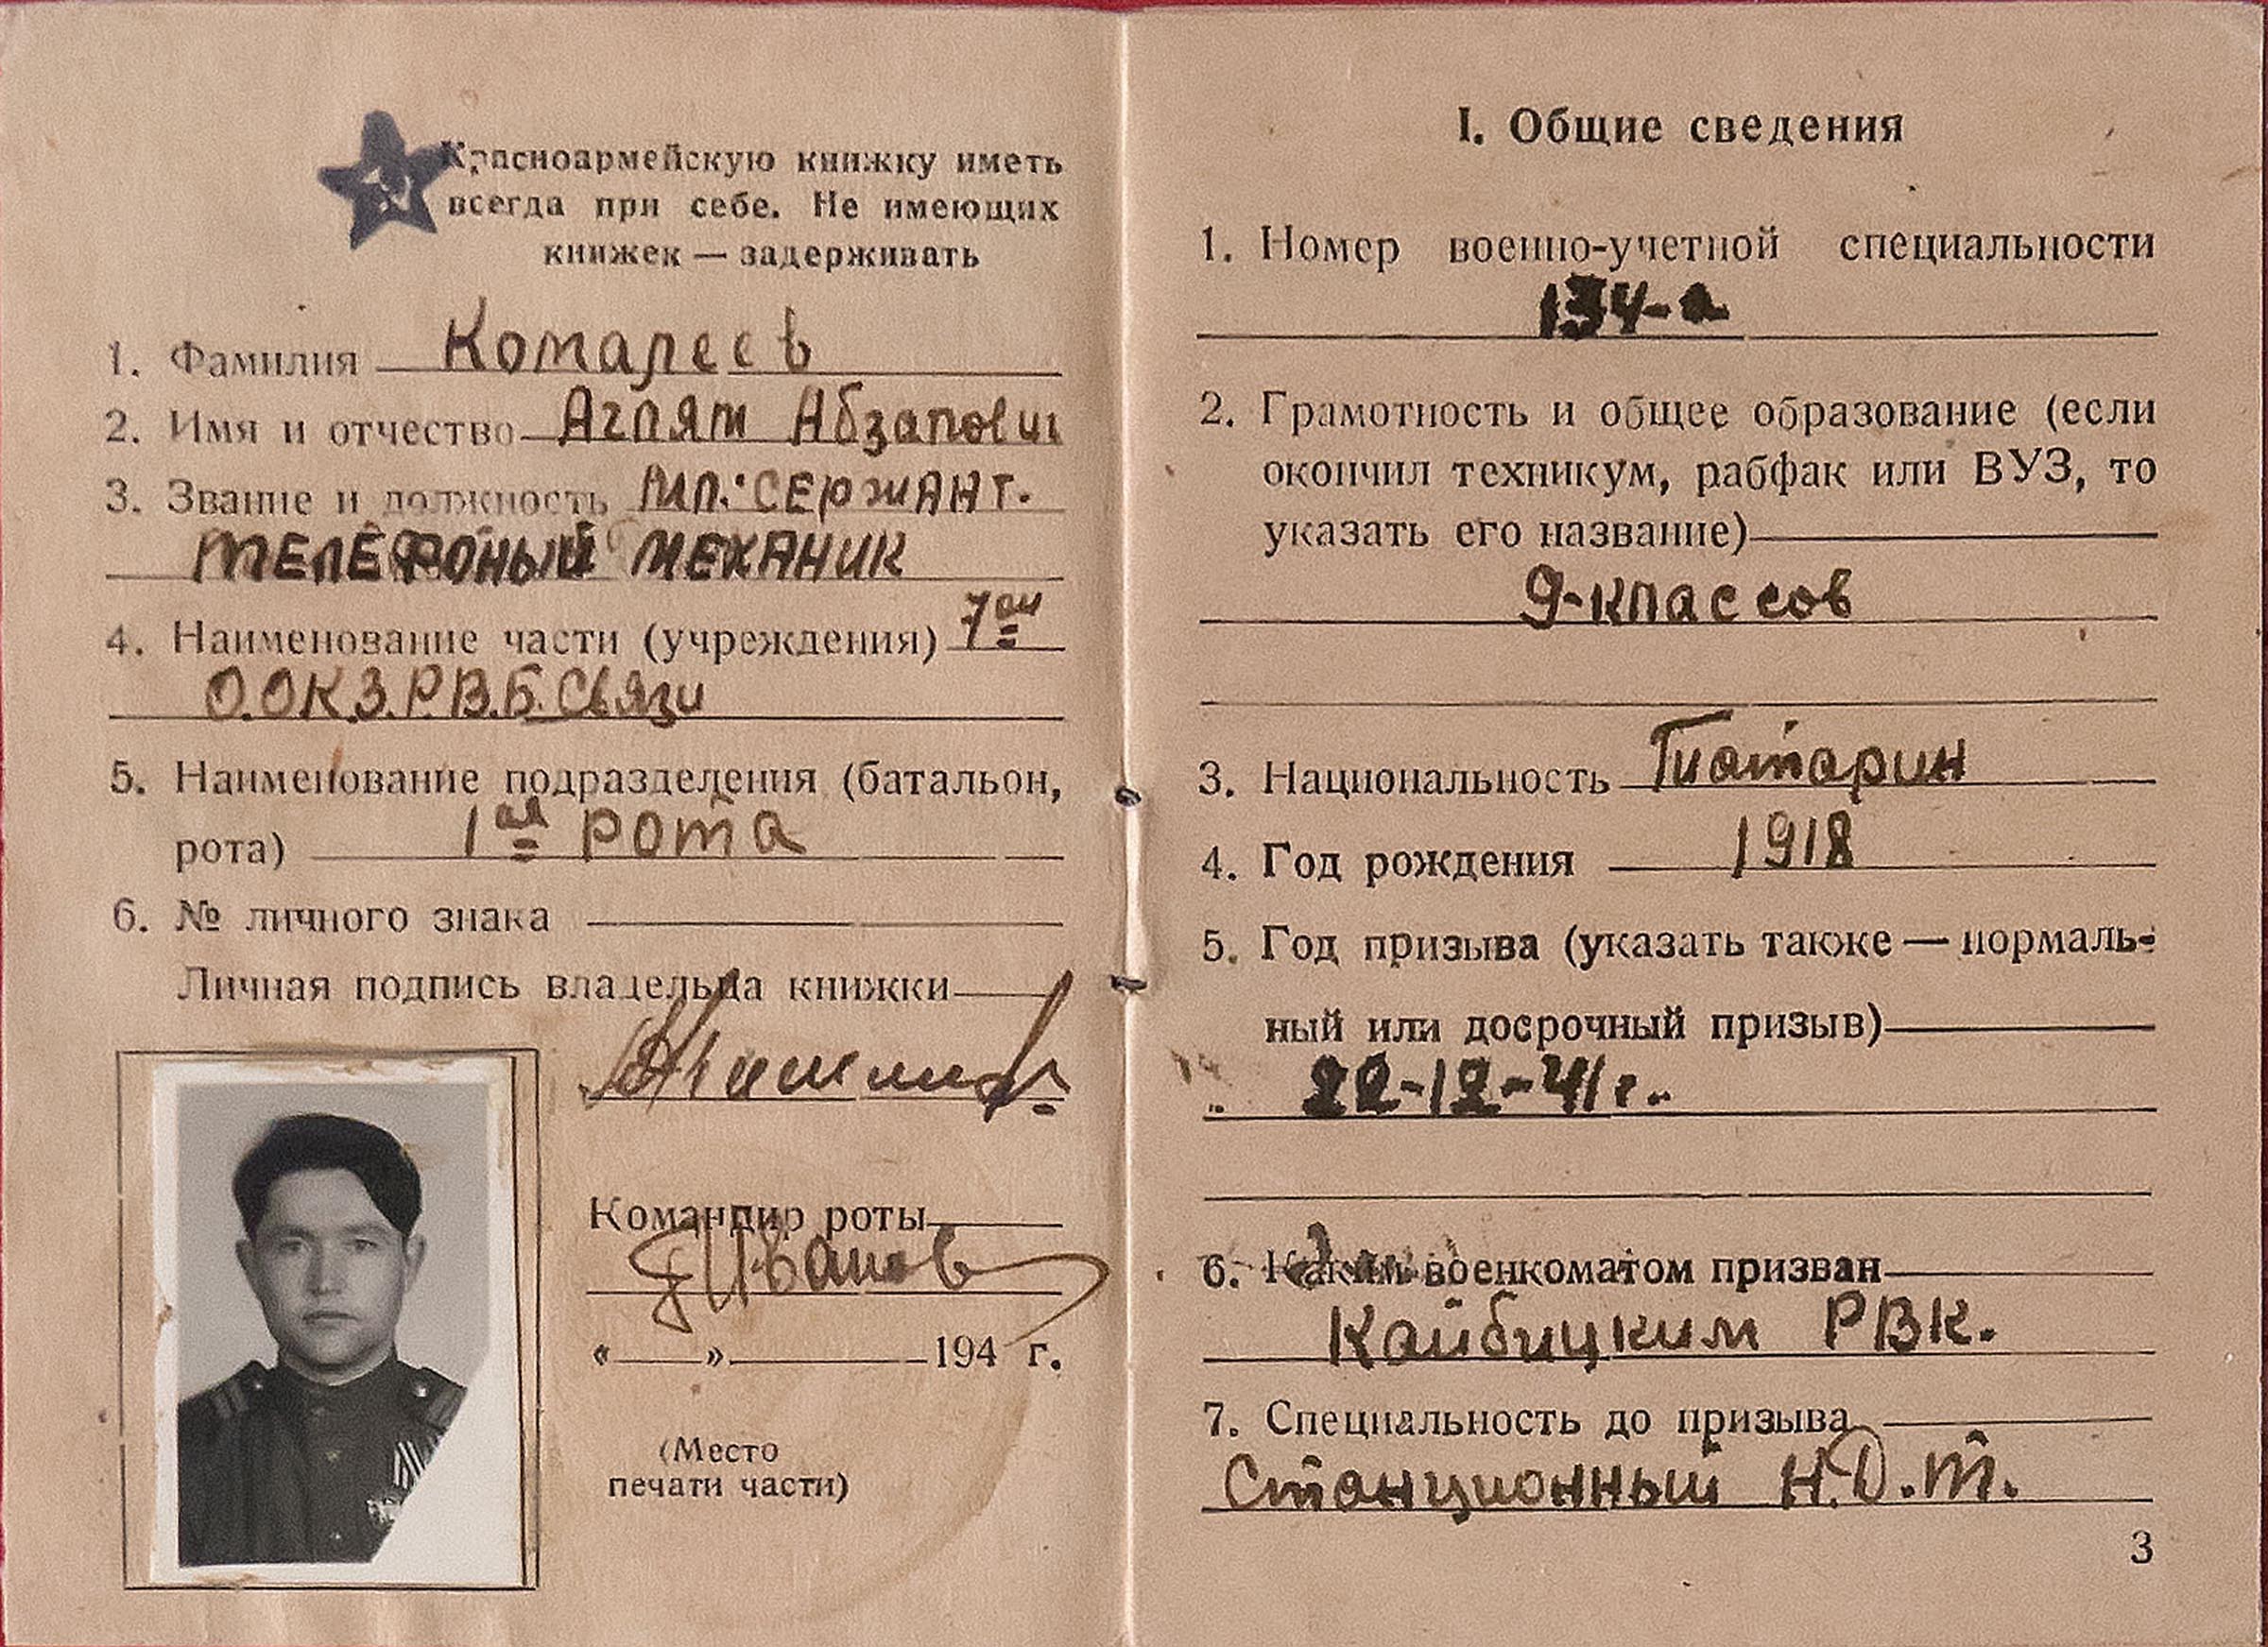 Красноармейскую книжку иметь
всегда при себе. Не имеющих
книжек — задерживать
1. Фамилия Комалеев
2. Имя и отчество Агляm Абзалович
3. Звание и должность Мл. СЕРжАНТ.
ТЕЛЕФОНЫЙ МЕХАНИК
4. Наименование части (учреждения) 7ой
О.ОК.З.Р.В.Б. Связи
5. Наименование подразделения (батальон,
рота) 1ая рота
6. № личного знака
Личная подпись владельца книжки
Командир роты
Иванов
« » 194 г.
(Место
печати части)
I. Общие сведения
1. Номер военно-учетной специальности
134-а
2. Грамотность и общее образование (если
окончил техникум, рабфак или ВУЗ, то
указать его название)
9-классов
3. Национальность Татарин
4. Год рождения 1918
5. Год призыва (указать также — нормаль-
ный или досрочный призыв)
22-12-41г.
6. Каким военкоматом призван
Кайбицким РВК.
7. Специальность до призыва
Станционный Н.О.Т.
3